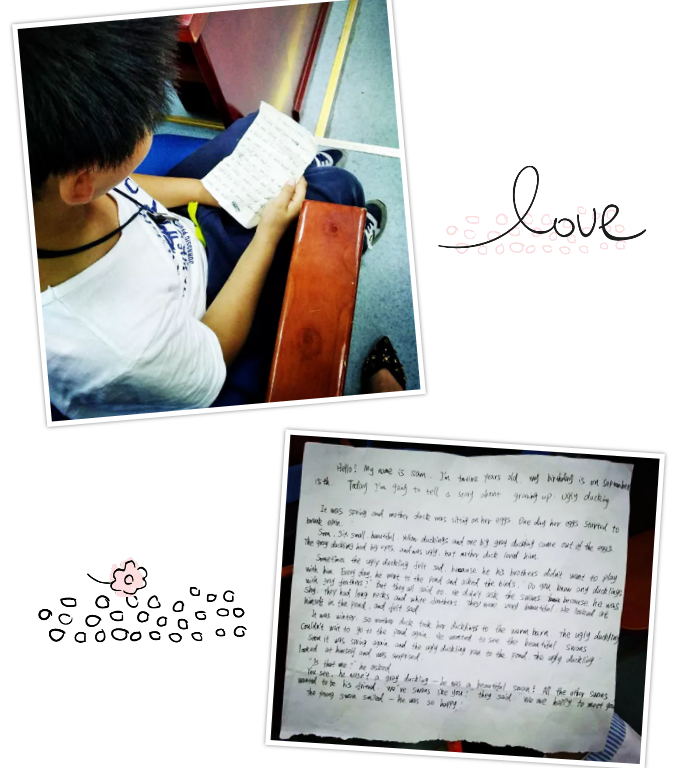 love
Hello! My name is Sam. I'm twelve years old. my birthday is on September
is th. Today I'm going to tell a story about growing up ugly duckling
It was spring and mother duck was sitting on her eggs. One day her eggs started to
break open.
Soon, six small beautiful yellow ducklings and one big grey duckling came out of the eggs.
The grey duckling had big eyes and was ugly, but mother duck loved him.
Sometimes the ugly duckling felt sad, because his brothers didn't want to play
with him. Every day he went to the pond and asked the birds, Do you know any ducklings
with grey feathers? but they all said no. He didn't ask the swans because he was
shy. They had long necks and white feathers. They were very beautiful. He looked at
himself in the pond, and felt sad.
It was winter, so mother duck took her ducklings to the warm barn. The ugly duckling
couldn't wait to go to the pond again. He wanted to see the beautiful swans
Soon it was spring again and the ugly duckling ran to the pond. The ugly duckling
looked at himself and was surprised.
"Is that me?" he asked
You see, he wasn't a grey duckling – he was a beautiful swan! All the other swans
wanted to be his friend. "We're swans like you!" they said. "We are happy to meet you
The young swan smiled – he was so happy!